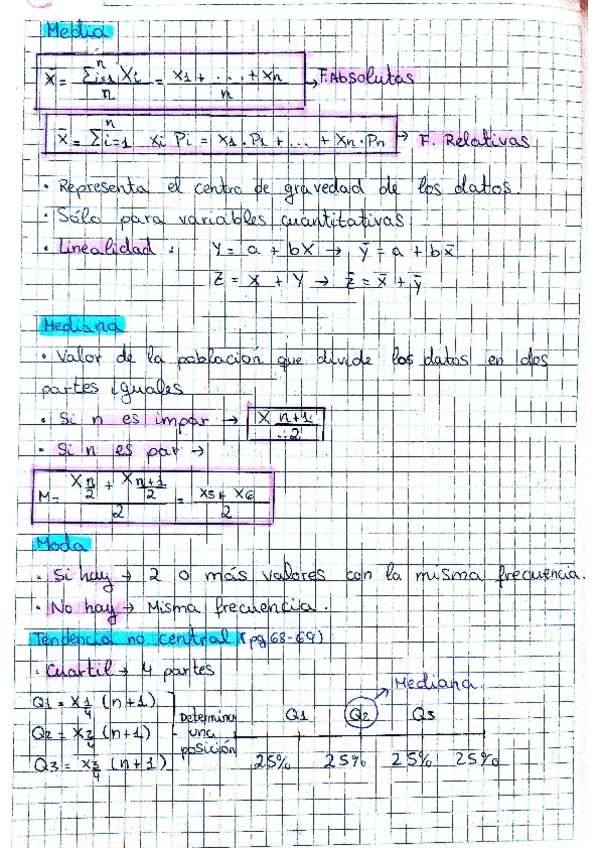 Media
x̄ = Σⁿᵢ₌₁ Xi / n = x1 + ... + xn / n → F. Absolutas
x̄ = Σⁿᵢ₌₁ xi Pi = x1·P1 + ... + xn·Pn → F. Relativas
· Representa el centro de gravedad de los datos.
· Sólo para variables cuantitativas
· Linealidad : Y = a + bX → ȳ = a + bx̄
Z = X + Y → z̄ = x̄ + ȳ
Mediana
· Valor de la población que divide los datos en dos
partes iguales
· Si n es impar → X n+1/2
· Si n es par →
M = (X n/2 + X n+1/2) / 2 = (X5 + X6) / 2
Moda
· Si hay → 2 o más valores con la misma frecuencia.
· No hay → Misma frecuencia.
Tendencia no central (pg 68-69)
· Cuartil → 4 partes
→ Mediana
Q1 = X 1/4 (n+1)
Q2 = X 2/4 (n+1)
Q3 = X 3/4 (n+1)
Determina
una
posición
Q1 Q2 Q3
25% 25% 25% 25%